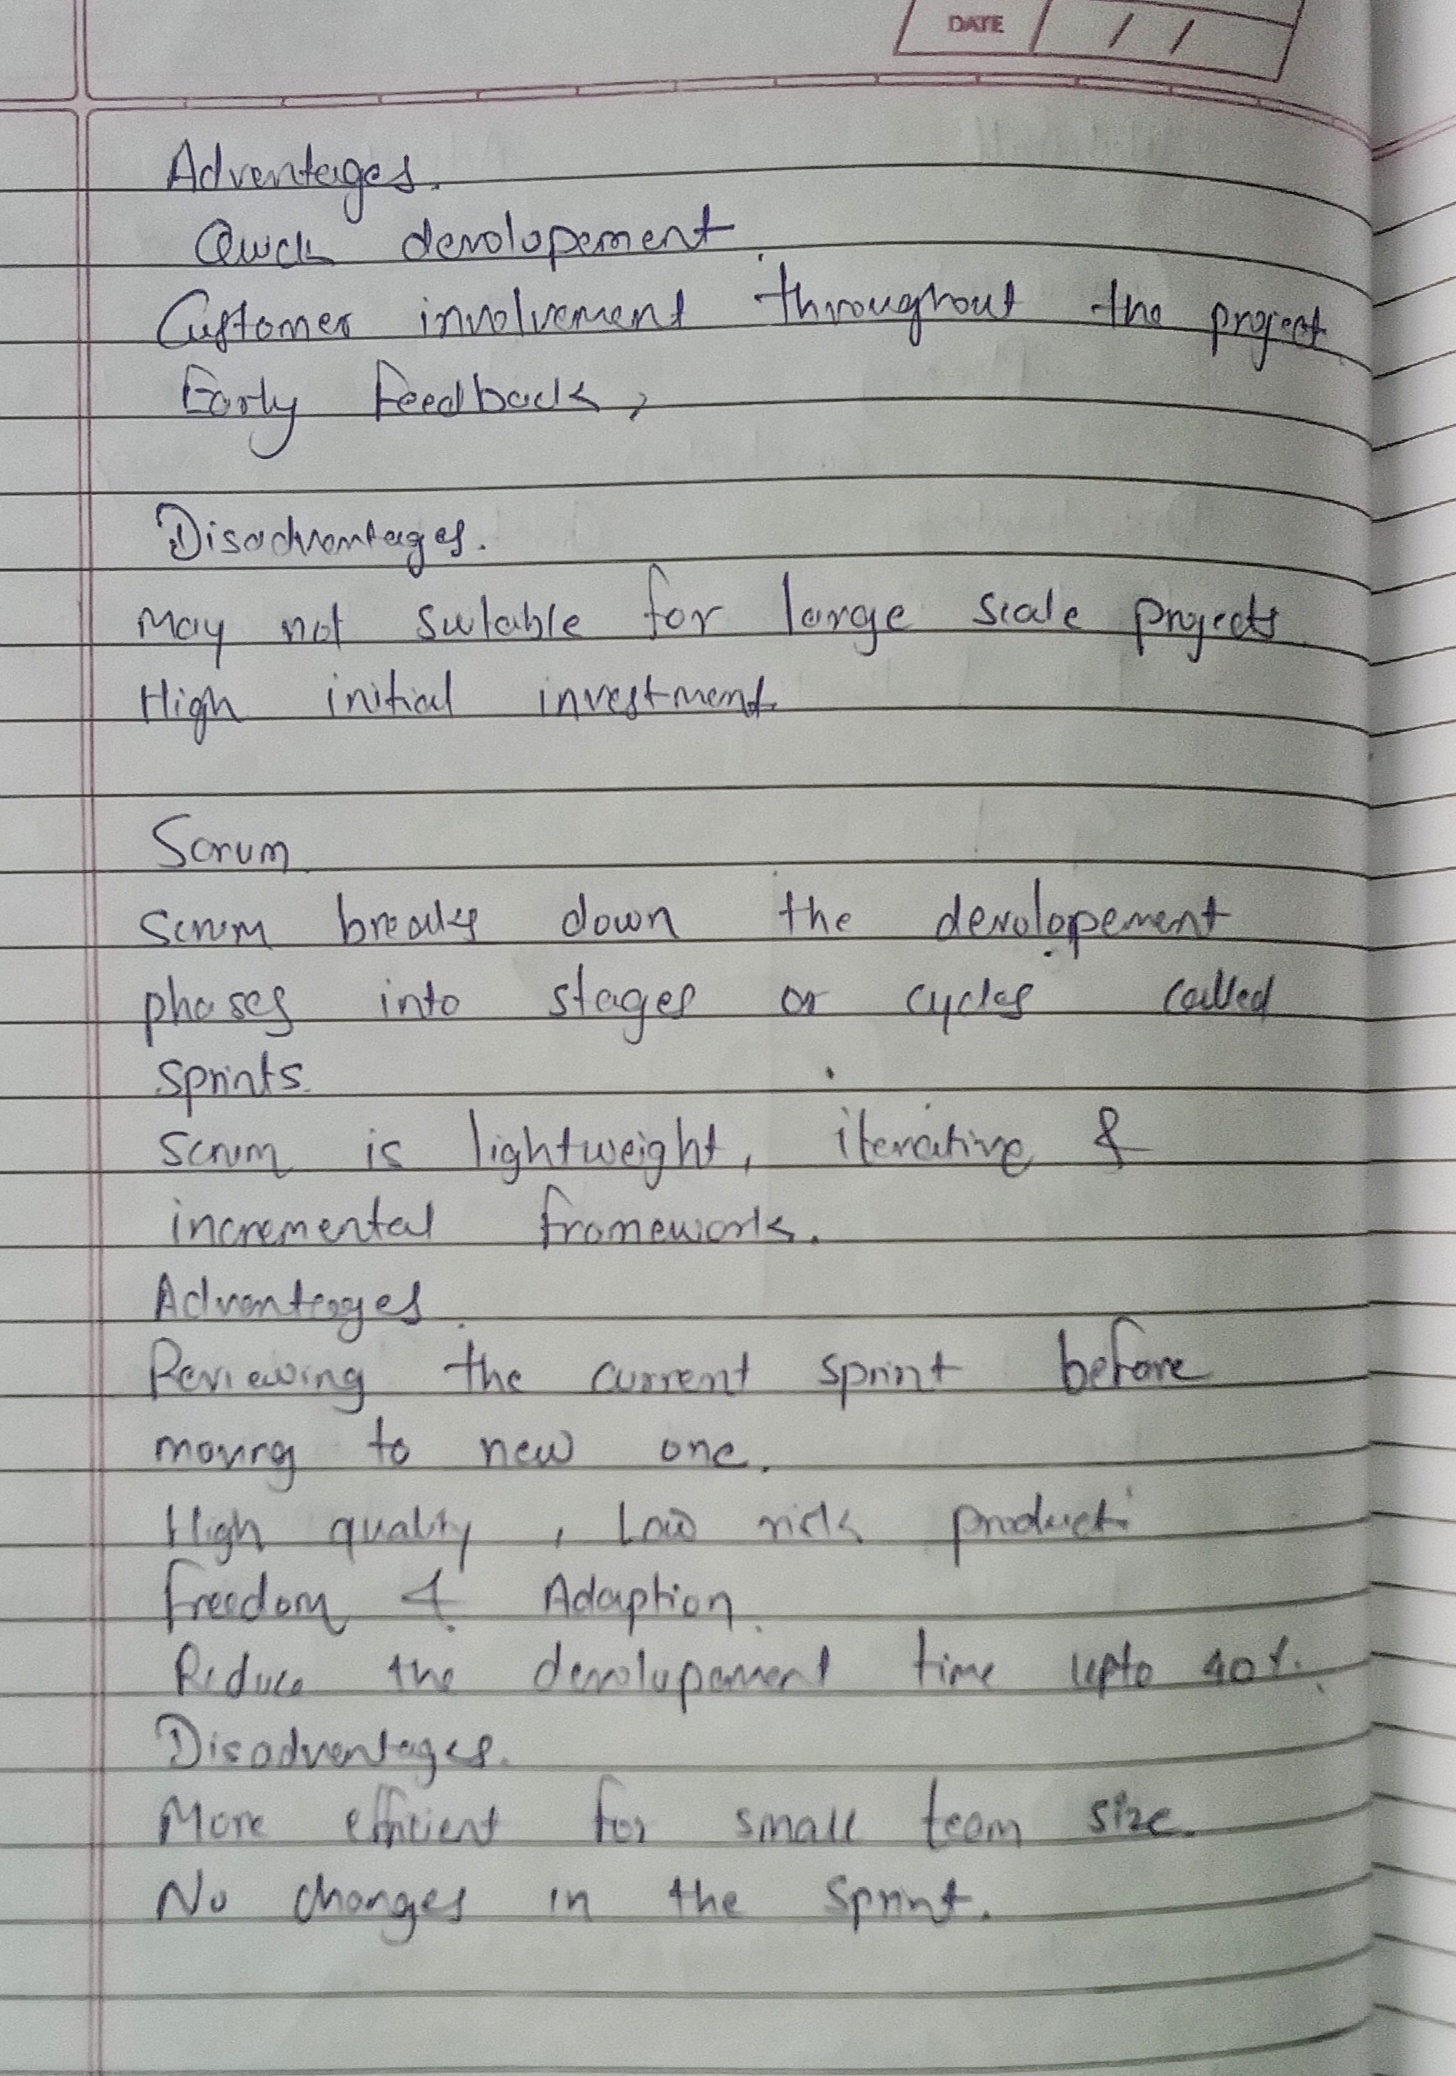 DATE / /
Adventages.
Quick devolopement.
Customer involvement throughout the project
Early Feedback,
Disadvantages.
May not sutable for large scale projects.
High initial investment.
Scrum
Scrum breaks down the devolopement
phases into stages or cycles called
sprints.
Scrum is lightweight, iterative &
incremental framework.
Advantages.
Reviewing the current sprint before
moving to new one.
High quality, Low risk product.
freedom & Adaption.
Reduce the devolupement time upto 40%.
Disadventages.
More efficient for small team size.
No changes in the Sprint.